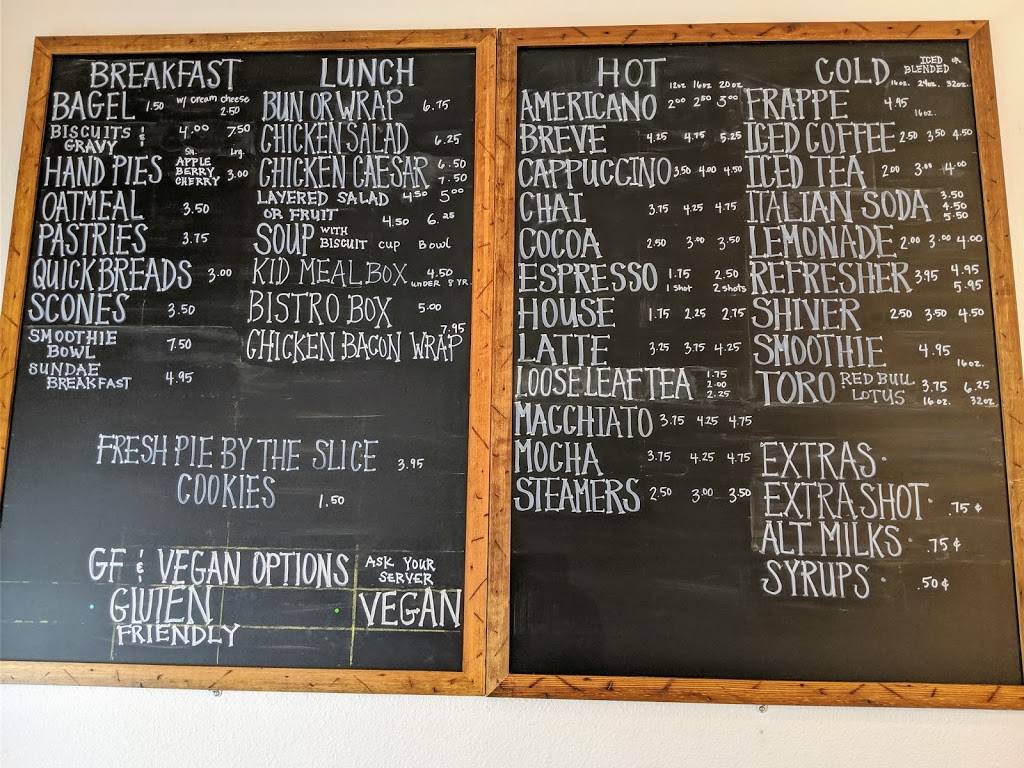 BREAKFAST
BAGEL 1.50 w/ cream cheese 2.50
BISCUITS & GRAVY 4.00 7.50
Sm. Lrg.
HAND PIES APPLE BERRY CHERRY 3.00
OATMEAL 3.50
PASTRIES 3.75
QUICK BREADS 3.00
SCONES 3.50
SMOOTHIE BOWL 7.50
SUNDAE BREAKFAST 4.95
LUNCH
BUN OR WRAP 6.75
CHICKEN SALAD 6.25
CHICKEN CAESAR 6.50 7.50
LAYERED SALAD 4.50 5.00
OR FRUIT 4.50 6.25
SOUP WITH BISCUIT CUP BOWL
KID MEAL BOX 4.50 UNDER 8 YR.
BISTRO BOX 5.00
7.95
CHICKEN BACON WRAP
FRESH PIE BY THE SLICE 3.95
COOKIES 1.50
GF & VEGAN OPTIONS ASK YOUR SERVER
GLUTEN FRIENDLY
VEGAN
HOT 12oz 16oz 20oz
AMERICANO 2.00 2.50 3.00
BREVE 4.25 4.75 5.25
CAPPUCCINO 3.50 4.00 4.50
CHAI 3.75 4.25 4.75
COCOA 2.50 3.00 3.50
ESPRESSO 1.75 2.50
1 shot 2 shots
HOUSE 1.75 2.25 2.75
LATTE 3.25 3.75 4.25
LOOSE LEAF TEA 1.75 2.00 2.25
MACCHIATO 3.75 4.25 4.75
MOCHA 3.75 4.25 4.75
STEAMERS 2.50 3.00 3.50
COLD ICED OR BLENDED
16oz. 24oz. 32oz.
FRAPPE 4.95 16oz.
ICED COFFEE 2.50 3.50 4.50
ICED TEA 2.00 3.00 4.00
ITALIAN SODA 3.50 4.50 5.50
LEMONADE 2.00 3.00 4.00
REFRESHER 3.95 4.95 5.95
SHIVER 2.50 3.50 4.50
SMOOTHIE 4.95 16oz.
TORO RED BULL LOTUS 3.75 6.25
16oz. 32oz.
EXTRAS.
EXTRA SHOT. .75¢
ALT MILKS. .75¢
SYRUPS. .50¢